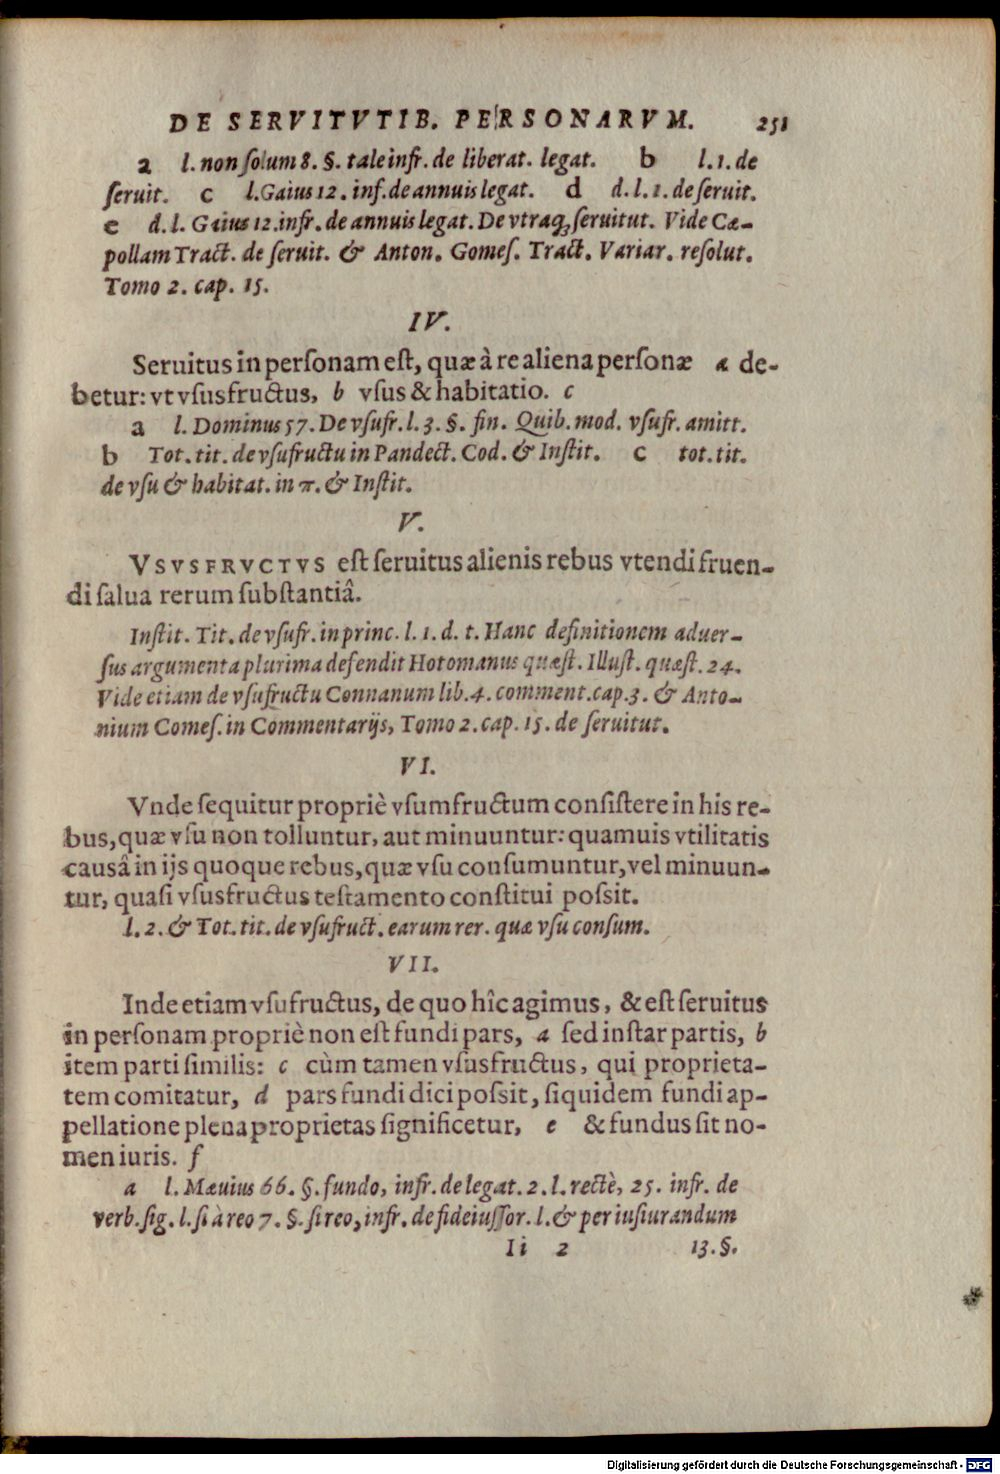 DE SERVITVTIB. PERSONARVM. 251
a l. non solum 8. §. tale infr. de liberat. legat. b l. 1. de
seruit. c l. Gaius 12. inf. de annuis legat. d d. l. 1. de seruit.
e d. l. Gaius 12. infr. de annuis legat. De vtraq; seruitut. Vide Cæ-
pollam Tract. de seruit. & Anton. Gomes. Tract. Variar. resolut.
Tomo 2. cap. 15.
IV.
Seruitus in personam est, quæ à re aliena personæ a de-
betur: vt vsusfructus, b vsus & habitatio. c
a l. Dominus 57. De vsufr. l. 3. §. fin. Quib. mod. vsufr. amitt.
b Tot. tit. de vsufructu in Pandect. Cod. & Instit. c tot. tit.
de vsu & habitat. in π. & Instit.
V.
VSVSFRVCTVS est seruitus alienis rebus vtendi fruen-
di salua rerum substantiâ.
Instit. Tit. de vsufr. in princ. l. 1. d. t. Hanc definitionem aduer-
sus argumenta plurima defendit Hotomanus quæst. Illust. quæst. 24.
Vide etiam de vsufructu Connanum lib. 4. comment. cap. 3. & Anto-
nium Comes. in Commentarijs, Tomo 2. cap. 15. de seruitut.
VI.
Vnde sequitur propriè vsumfructum consistere in his re-
bus, quæ vsu non tolluntur, aut minuuntur: quamuis vtilitatis
causâ in ijs quoque rebus, quæ vsu consumuntur, vel minuun-
tur, quasi vsusfructus testamento constitui possit.
l. 2. & Tot. tit. de vsufruct. earum rer. quæ vsu consum.
VII.
Inde etiam vsufructus, de quo hîc agimus, & est seruitus
in personam propriè non est fundi pars, a sed instar partis, b
item parti similis: c cùm tamen vsusfructus, qui proprieta-
tem comitatur, d pars fundi dici possit, siquidem fundi ap-
pellatione plena proprietas significetur, e & fundus sit no-
men iuris. f
a l. Mæuius 66. §. fundo, infr. de legat. 2. l. rectè, 25. infr. de
verb. sig. l. si à reo 7. §. si reo, infr. de fideiussor. l. & per iusiurandum
Ii 2 13. §.
Digitalisierung gefördert durch die Deutsche Forschungsgemeinschaft - DFG